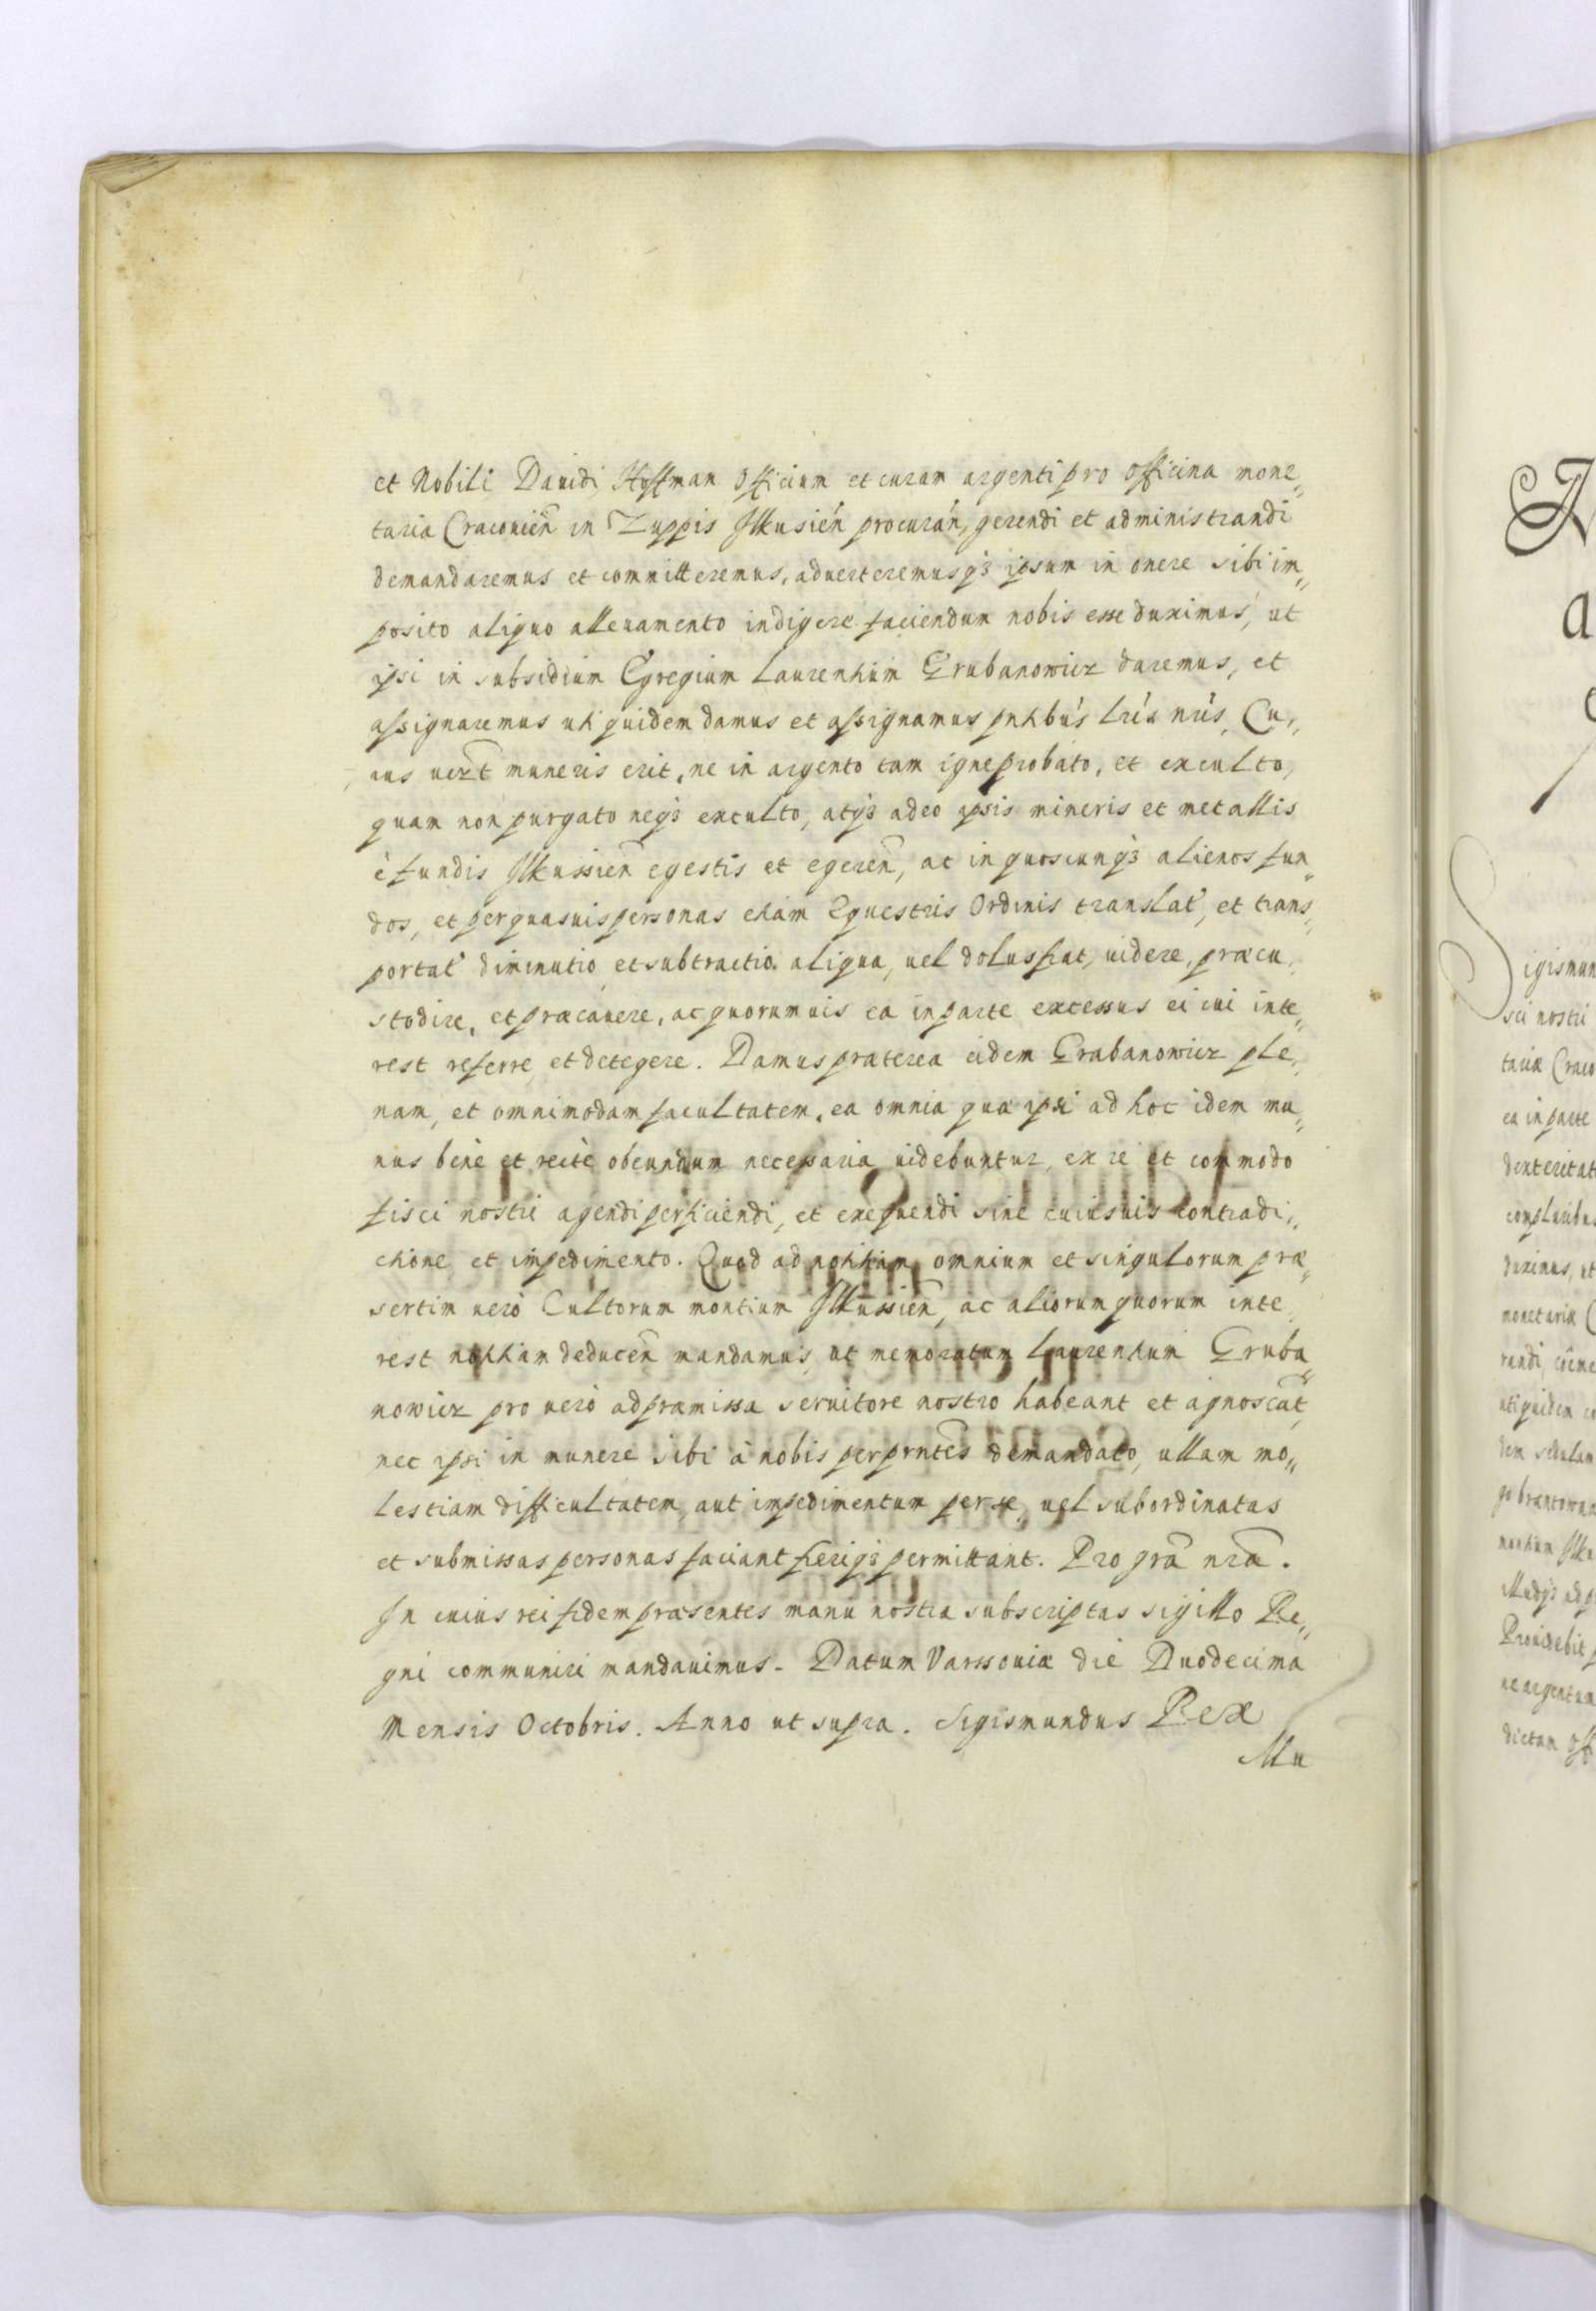 et Nobili Dauidi Hoffman Officium et curam argenti pro Officina mone„
taria Cracouień in Zuppis Ilkusień procurań, gerendi et administrandi
demandaremus et committeremus, aduerteremusq3 ipsum in onere sibi im„
posito aliquo alleuamento indigere faciendum nobis esse duximus, ut
ipsi in subsidium Egregium Laurentium Grubanowicz daremus, et
assignaremus uti quidem damus et assignamus pntibus lris nris, Cu„
ius uert muneris erit, ne in argento tam igne probato, et exculto,
quam non purgato neq3 exculto, atq3 adeo ipsis mineris et metallis
è fundis Ilkussien egestis et egeren, ac in quoscunq3 alienos fun„
dos, et per quasuis personas etiam Equestris Ordinis translat, et trans„
portat diminutio et subtractio aliqua, uel dolus fiat, uidere, præcu„
stodire, et præcauere, ac quorumuis ea in parte excessus ei cui inte„
rest referre, et detegere. Damus præterea eidem Grabanowicz ple„
nam, et omnimodam facultatem, ea omnia quæ ipsi ad hoc idem mu„
nus benè et rectè obeundum necessaria uidebuntur, ex re et commodo
fisci nostri agendi perficiendi, et exequendi sine cuiusuis contradi„
ctione et impedimento. Quod ad notitiam omnium et singulorum præ„
sertim uerò Cultorum montium Ilkussien, ac aliorum quorum inte„
rest notitiam deducen mandamus, ut memoratum Laurentium Gruba„
nowicz pro uerò ad præmissa seruitore nostro habeant et agnoscat,
nec ipsi in munere sibi à nobis per prntes demandato, ullam mo„
lestiam difficultatem, aut impedimentum per se, uel subordinatas
et submissas personas faciant fieriq3 permittant. Pro gra nra.
In cuius rei fidem præsentes manu nostra subscriptas sigillo Re„
gni communiri mandauimus. Datum Varssouiæ die Duodecima
Mensis Octobris. Anno ut supra. Sigismundus Rex
Mu
igismun
sci nostri
tariæ Craco
ea in parte
dexteritat
compluribus
duximus, et
monetariæ
uti quidem
dictam off